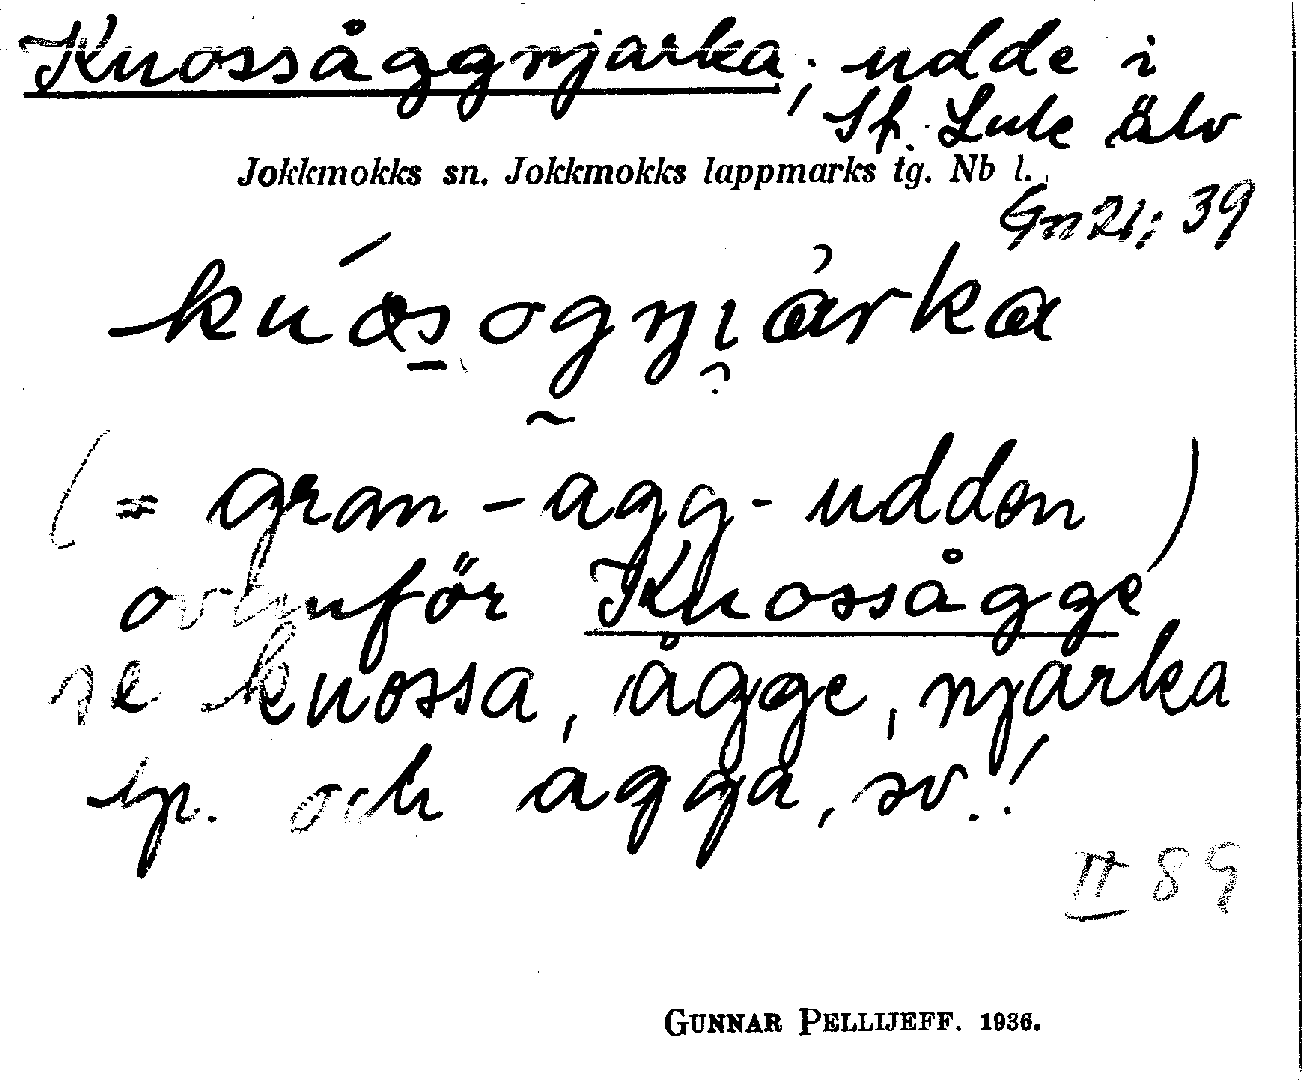 Knossåggnjarka, udde i
St. Lule älv
Jokkmokks sn. Jokkmokks lappmarks tg. Nb l.
Gn 21; 39
knósognjárka
(= gran-agg-udden)
ovanför Knossågge
se knossa, ågge, njarka
lp. och agga, sv.!
II 89
GUNNAR PELLIJEFF. 1936.